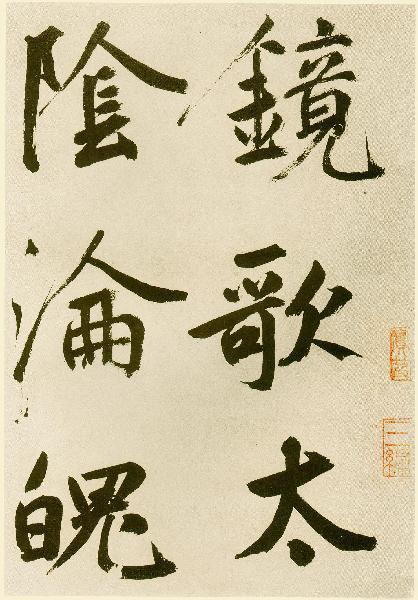 鏡歌太
陰淪魄